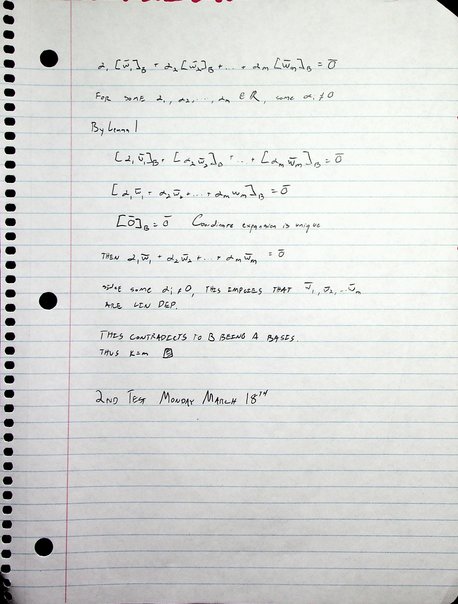 α₁[w̄₁]_B + α₂[w̄₂]_B + ... + αm[w̄m]_B = 0̄
FOR SOME α₁, α₂, ..., αm ∈ R, SOME αᵢ ≠ 0
By Lemma 1
[α₁w̄₁]_B + [α₂w̄₂]_B + ... + [αm w̄m]_B = 0̄
[α₁w̄₁ + α₂w̄₂ + ... + αm wm]_B = 0̄
[0̄]_B = 0̄ Coordinate expansion is unique
THEN α₁w̄₁ + α₂w̄₂ + ... + αm w̄m = 0̄
SINCE SOME αᵢ ≠ 0, THIS IMPLIES THAT w̄₁, w̄₂, ... w̄m
ARE LIN DEP.
THIS CONTRADICTS TO B BEING A BASIS.
THUS K=m
2ND TEST MONDAY MARCH 18TH